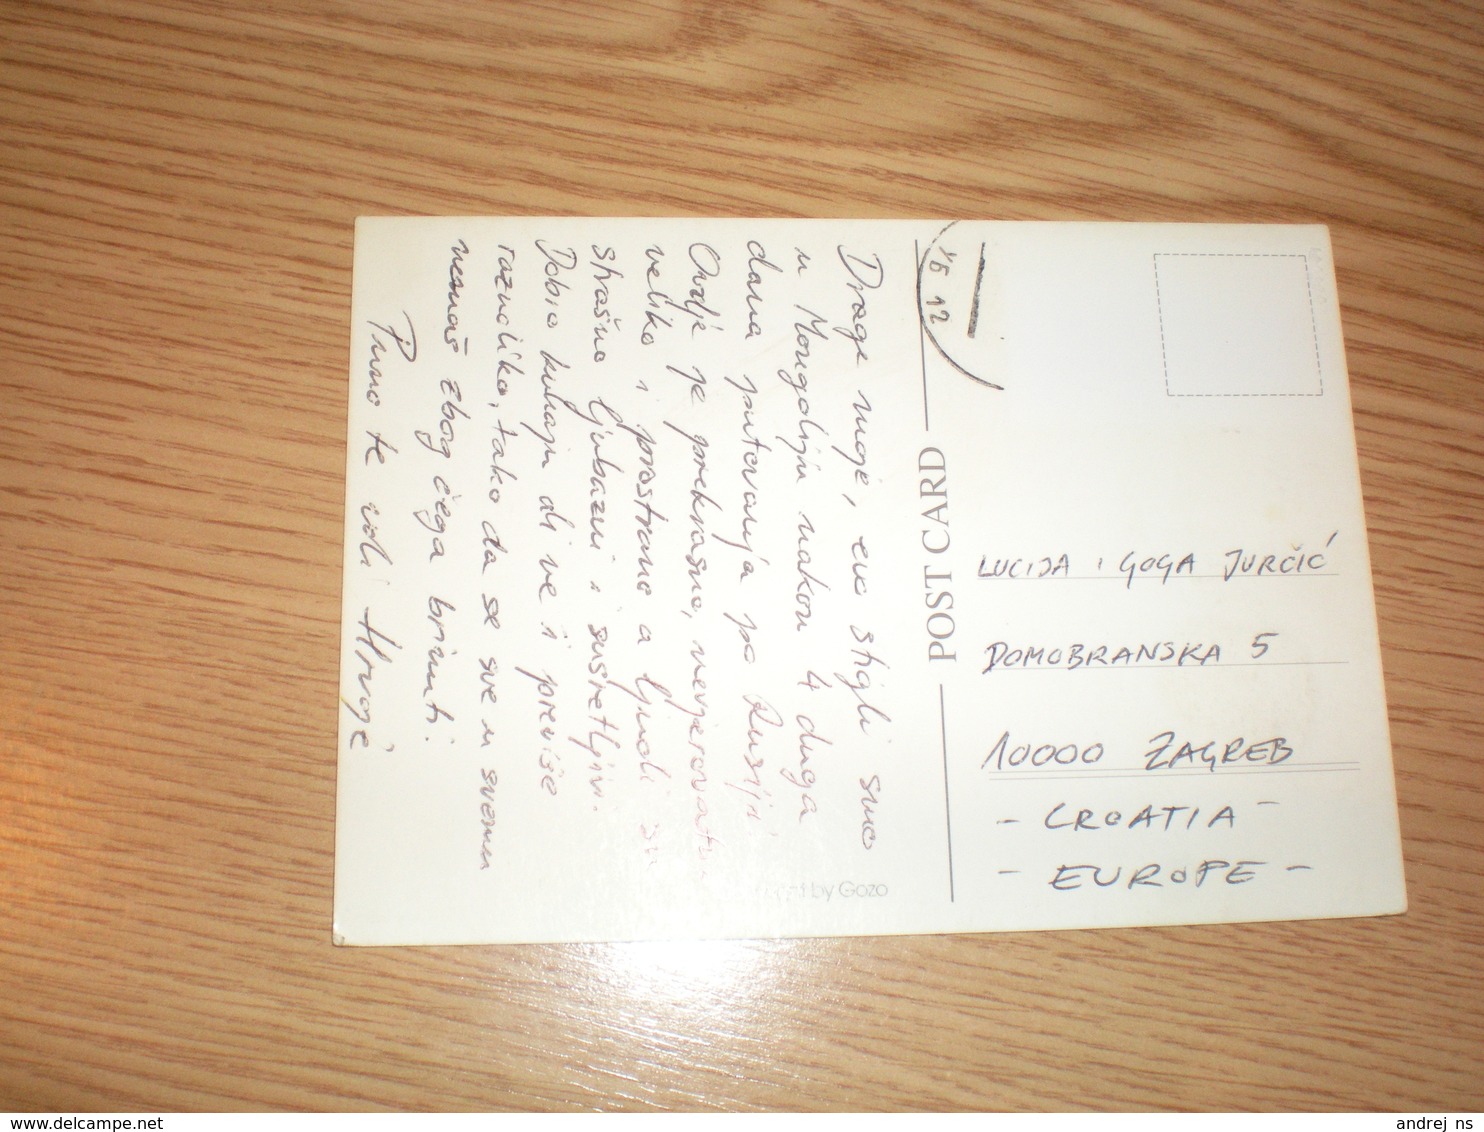 Drage moje, evo stigli smo
u Mongoliju nakon 4 duga
dana putovanja po Rusiji
Ovdje je prekrasno, nevjerovatno
velika i prostrana a ljudi su
strašno ljubazni i susretljivi.
Dobro kuhaju al ne i previše
raznoliko, tako da se sve u svemu
nemaš zbog čega brinuti.
Puno te voli Hrvoje
POST CARD
16 12
by Gozo
LUCIJA i GOGA JURČIĆ
DOMOBRANSKA 5
10000 ZAGREB
- CROATIA -
- EUROPE -
andrej_ns